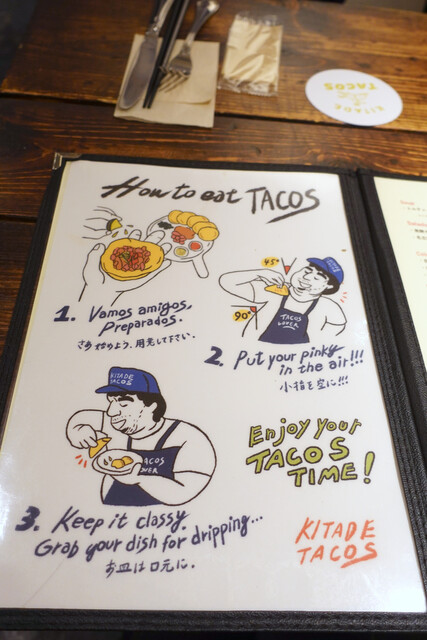 KITADE
TACOS
How to eat TACOS
1. Vamos amigos,
Preparados.
さあ始めよう、用意して下さい。
45°
90°
TACOS
LOVER
2. Put your pinky
in the air!!!
小指を空に!!!
KITADE
TACOS
TACOS
OVER
3. Keep it classy.
Grab your dish for dripping...
お皿は口元に.
Enjoy your
TACOS
TIME!
KITADE
TACOS